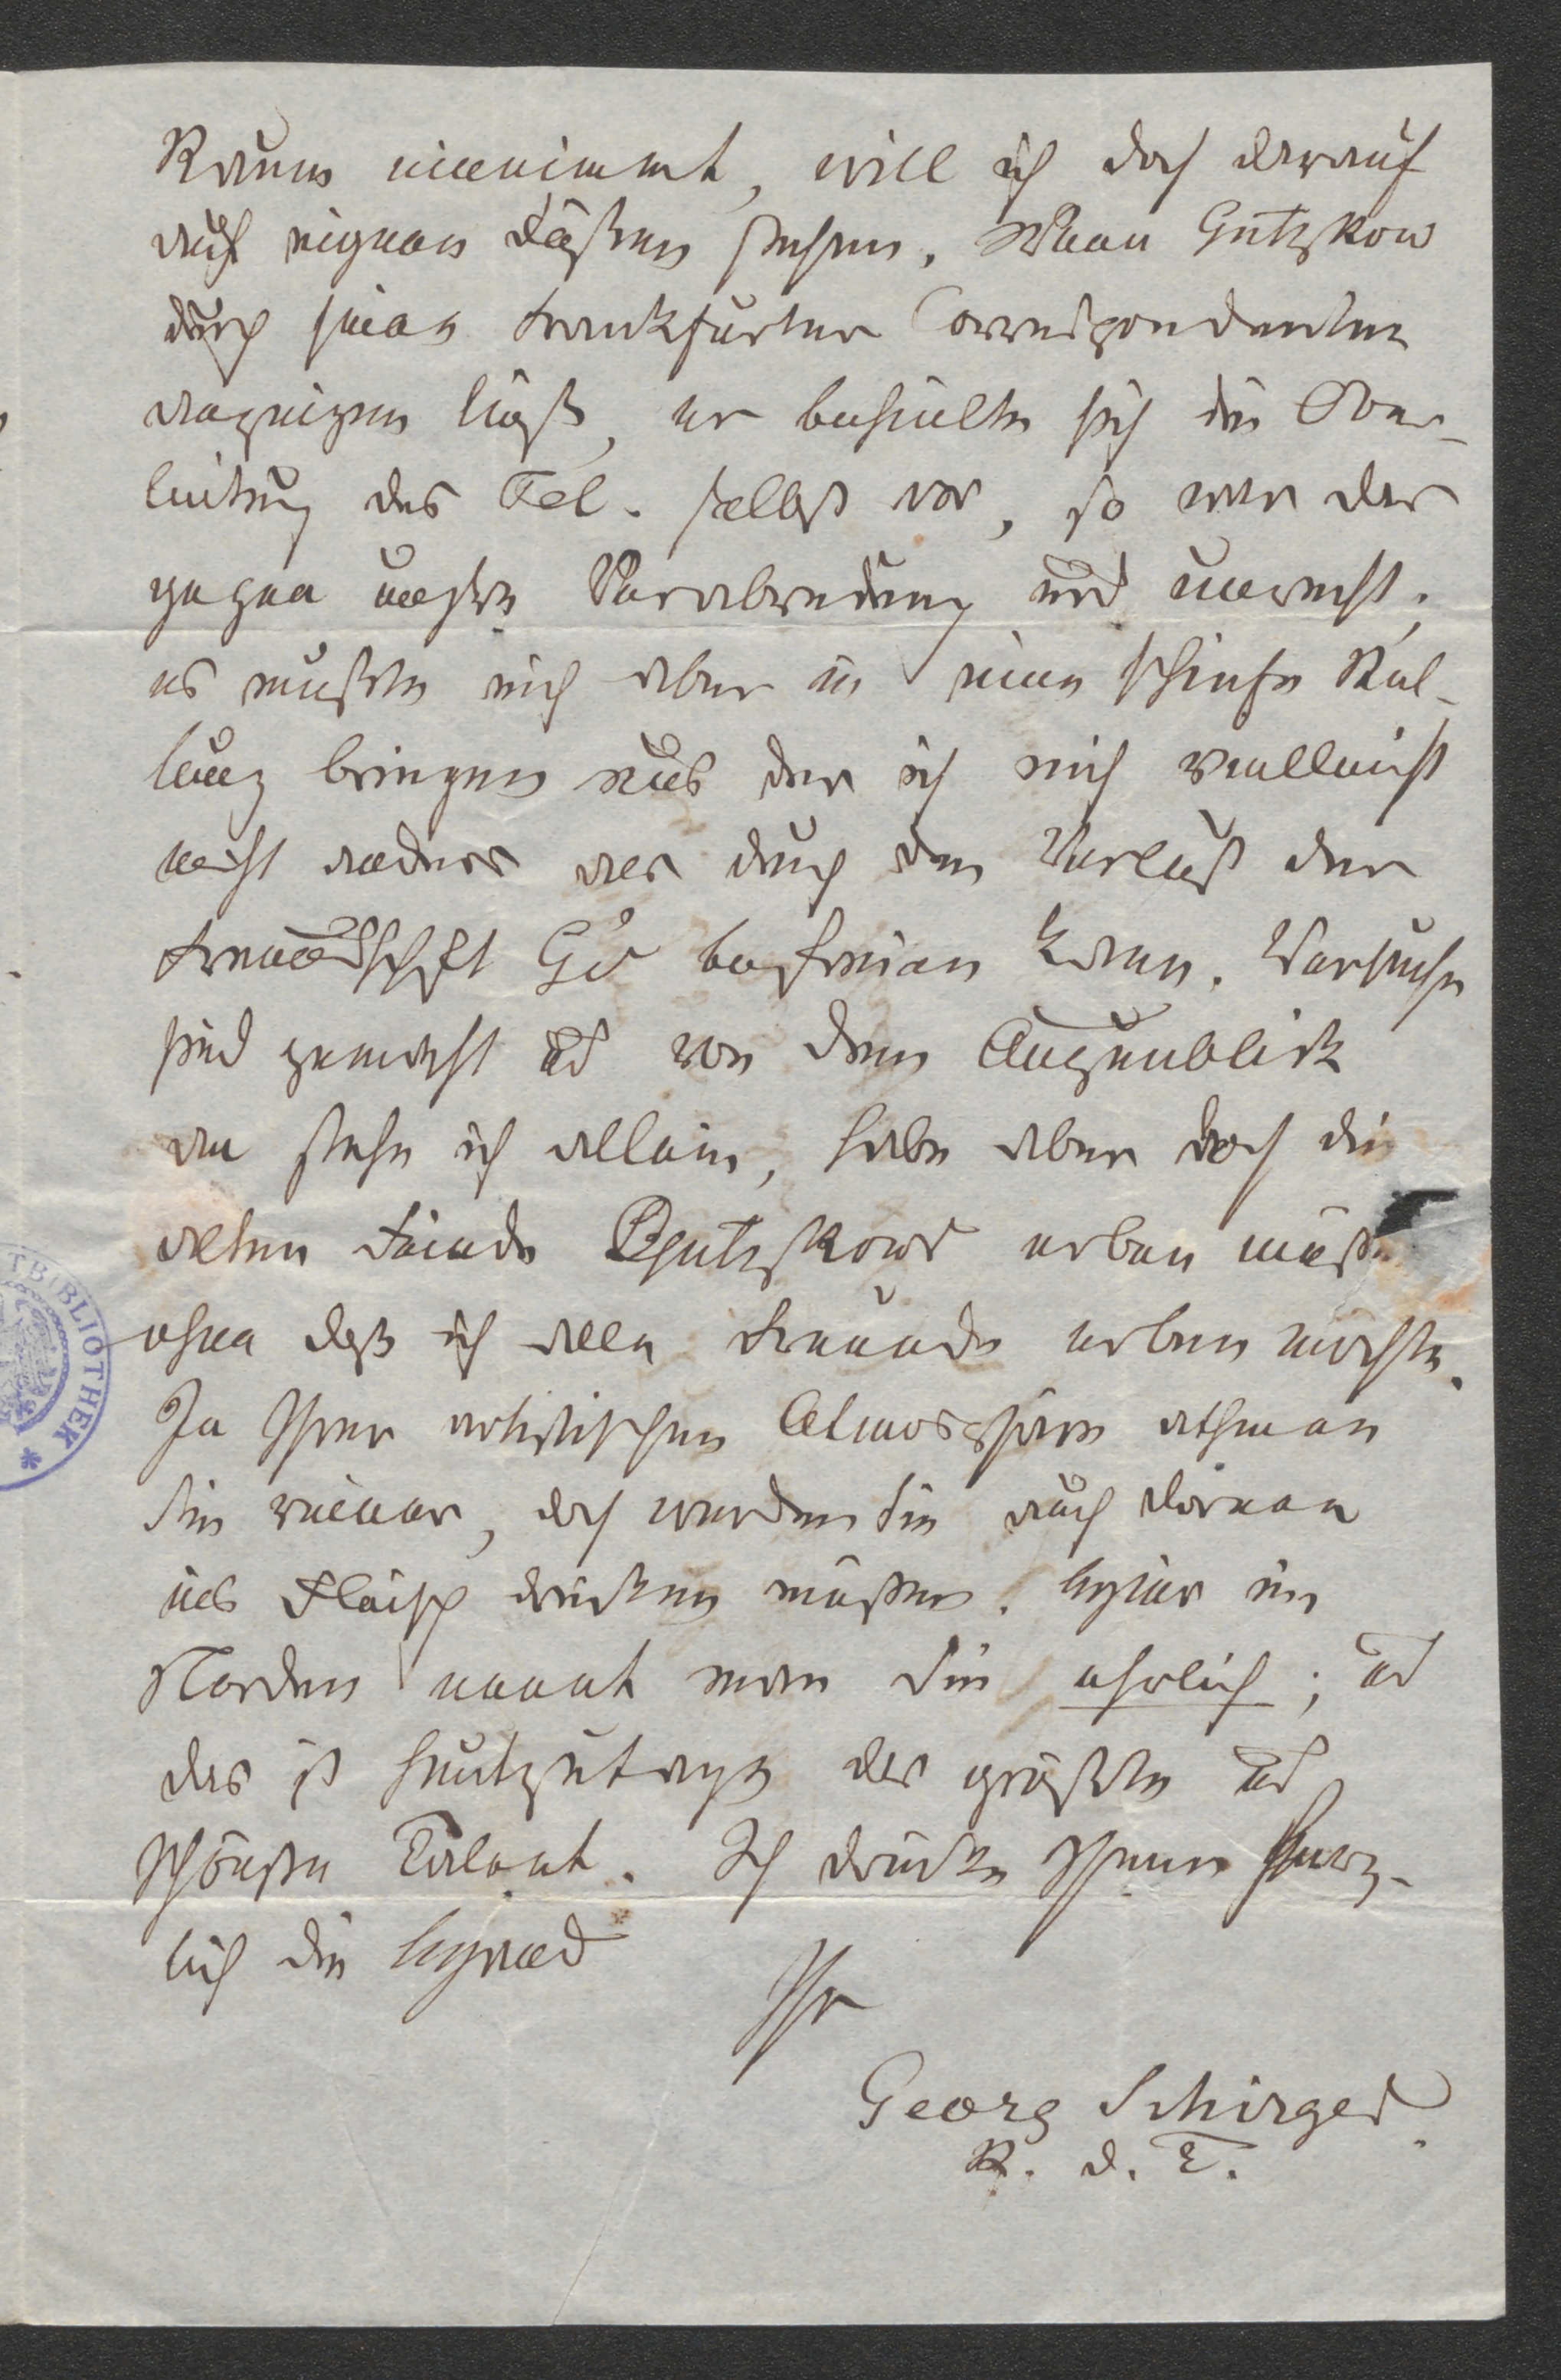 Raum einnimmt, will ich doch darauf
auf eignen Füßen stehen. Wenn Gutzkow
durch seinen Frankfurter Correspondenten
anzeigen ließ, er behielte sich die Ober-
leitung des Tel. selbst vor, so war das
gegen unsre Verabredung und unrecht;
es mußte mich aber in eine schiefe Stel-
lung bringen aus der ich mich vielleicht
nicht anders als durch den Verlust der
Freundschaft G's befreien kann. Versuche
sind gemacht ud von dem Augenblick
an stehe ich allein, habe aber doch die
alten Feinde Gutzkows erben müssen
ohne daß ich alle Freunde erben möchte.
In Ihrer artistischen Atmosphäre athmen
Sie reiner, doch werden Sie auch Dornen
ins Fleisch drücken müssen. Hier im
Norden nennt man Sie ehrlich; ud
das ist heutzutage das größte ud
schönste Talent. Ich drücke Ihnen herz-
lich die Hand
Ihr
Georg Schirges
R. d. T.
TBIBLIOTHEK *